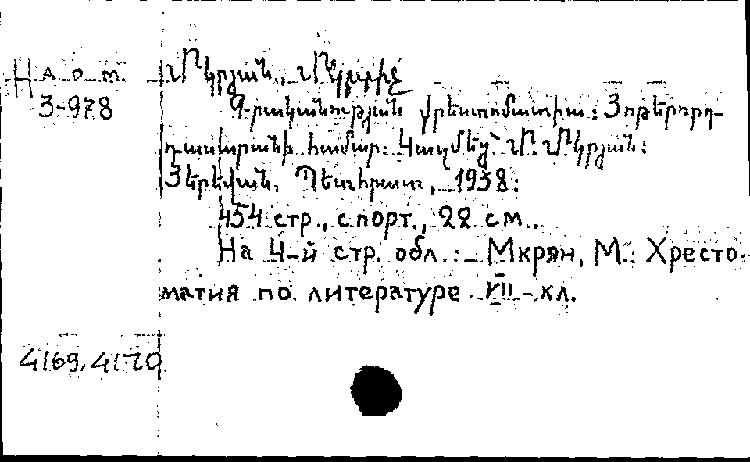 Н а о т. Մկրյան, Մկրտիչ
3-978 Գրականության քրեստոմատիա: Յոթերորդ
դասարանի համար: Կազմեց՝ Մ. Մկրյան:
Յերեվան, Պետհրատ, 1938:
454 стр., с порт., 22 см.
На 4-й стр. обл.: Мкрян, М. Хресто-
матия по литературе VII кл.
4169, 4170